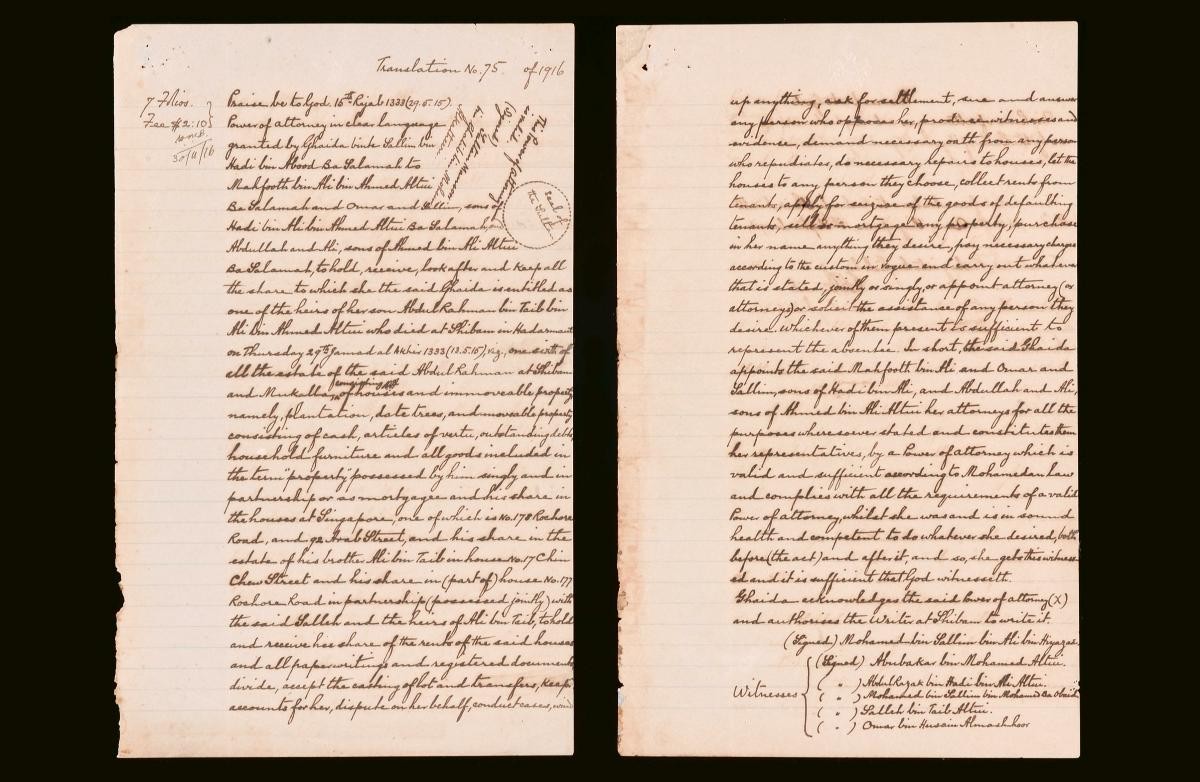 Translation No. 75. of 1916
7 Folios.
Fee $2:10
30/11/16
Praise be to God. 15th Rejab 1333 (29.5.15).
Power of attorney in clear language
granted by Ghaida binte Sallim bin
Hadi bin Abood Ba Salamah to
Mahfooth bin Ali bin Ahmed Altui
Ba Salamah and Omar and Sallim, sons of
Hadi bin Ali bin Ahmed Altui Ba Salamah,
Abdullah and Ali, sons of Ahmed bin Ali Altui
Ba Salamah, to hold, receive, look after and keep all
the share to which she the said Ghaida is entitled as
one of the heirs of her son Abdul Rahman bin Taib bin
Ali bin Ahmed Altui who died at Shibam in Hadramaut
on Thursday 29th Jamad al Akhir 1333 (13.5.15), viz., one sixth of
all the estate of the said Abdul Rahman at Shibam
and Mukalla, consisting of houses and immoveable property
namely, plantation, date trees, and moveable property
consisting of cash, articles of vertu, outstanding debts,
household furniture and all goods included in
the term "property" possessed by him singly and in
partnership or as mortgagee and his share in
the houses at Singapore, one of which is No. 178 Rochore
Road, and 92 Arab Street, and his share in the
estate of his brother Ali bin Taib in house No. 17 Chin
Chew Street and his share in (part of) house No. 177
Rochore Road in partnership (possessed jointly) with
the said Salleh and the heirs of Ali bin Taib, to hold
and receive her share of the rents of the said houses
and all paper writings and registered documents
divide, accept the casting of lot and transfers, keep
accounts for her, dispute on her behalf, conduct cases, wind
The Power of attorney is
(Signed)
Seal of
up anything, ask for settlement, sue and answer
any person who opposes her, produce witnesses and
evidence, demand necessary oath from any person
who repudiates, do necessary repairs to houses, let the
houses to any person they choose, collect rents from
tenants, apply for seizure of the goods of defaulting
tenants, sell or mortgage any property, purchase
in her name anything they desire, pay necessary charges
according to the custom in vogue and carry out whatever
that is stated, jointly or singly, or appoint attorney (or
attorneys) or solicit the assistance of any person they
desire. Whichever of them present is sufficient to
represent the absentee. In short, the said Ghaida
appoints the said Mahfooth bin Ali and Omar and
Sallim, sons of Hadi bin Ali, and Abdullah and Ali,
sons of Ahmed bin Ali Altui her attorneys for all the
purposes wheresoever stated and constitutes them
her representatives, by a Power of attorney which is
valid and sufficient according to Mohamedan law
and complies with all the requirements of a valid
Power of attorney, whilst she was and is in sound
health and competent to do whatever she desired, both
before (the act) and after it, and so, she gets this witness-
ed and it is sufficient that God witnesseth.
Ghaida acknowledges the said Power of attorney (X)
and authorises the Writer at Shibam to write it.
(Signed) Mohamed bin Sallim bin Ali bin
Witnesses
(Signed) Abubakar bin Mohamed Altui.
( " ) Abdul Razak bin Hadi bin Ali Altui.
( " ) Mohamed bin Sallim bin Mohamed Ba Obaid
( " ) Salleh bin Taib Altui.
( " ) Omar bin Husain Almashhoor